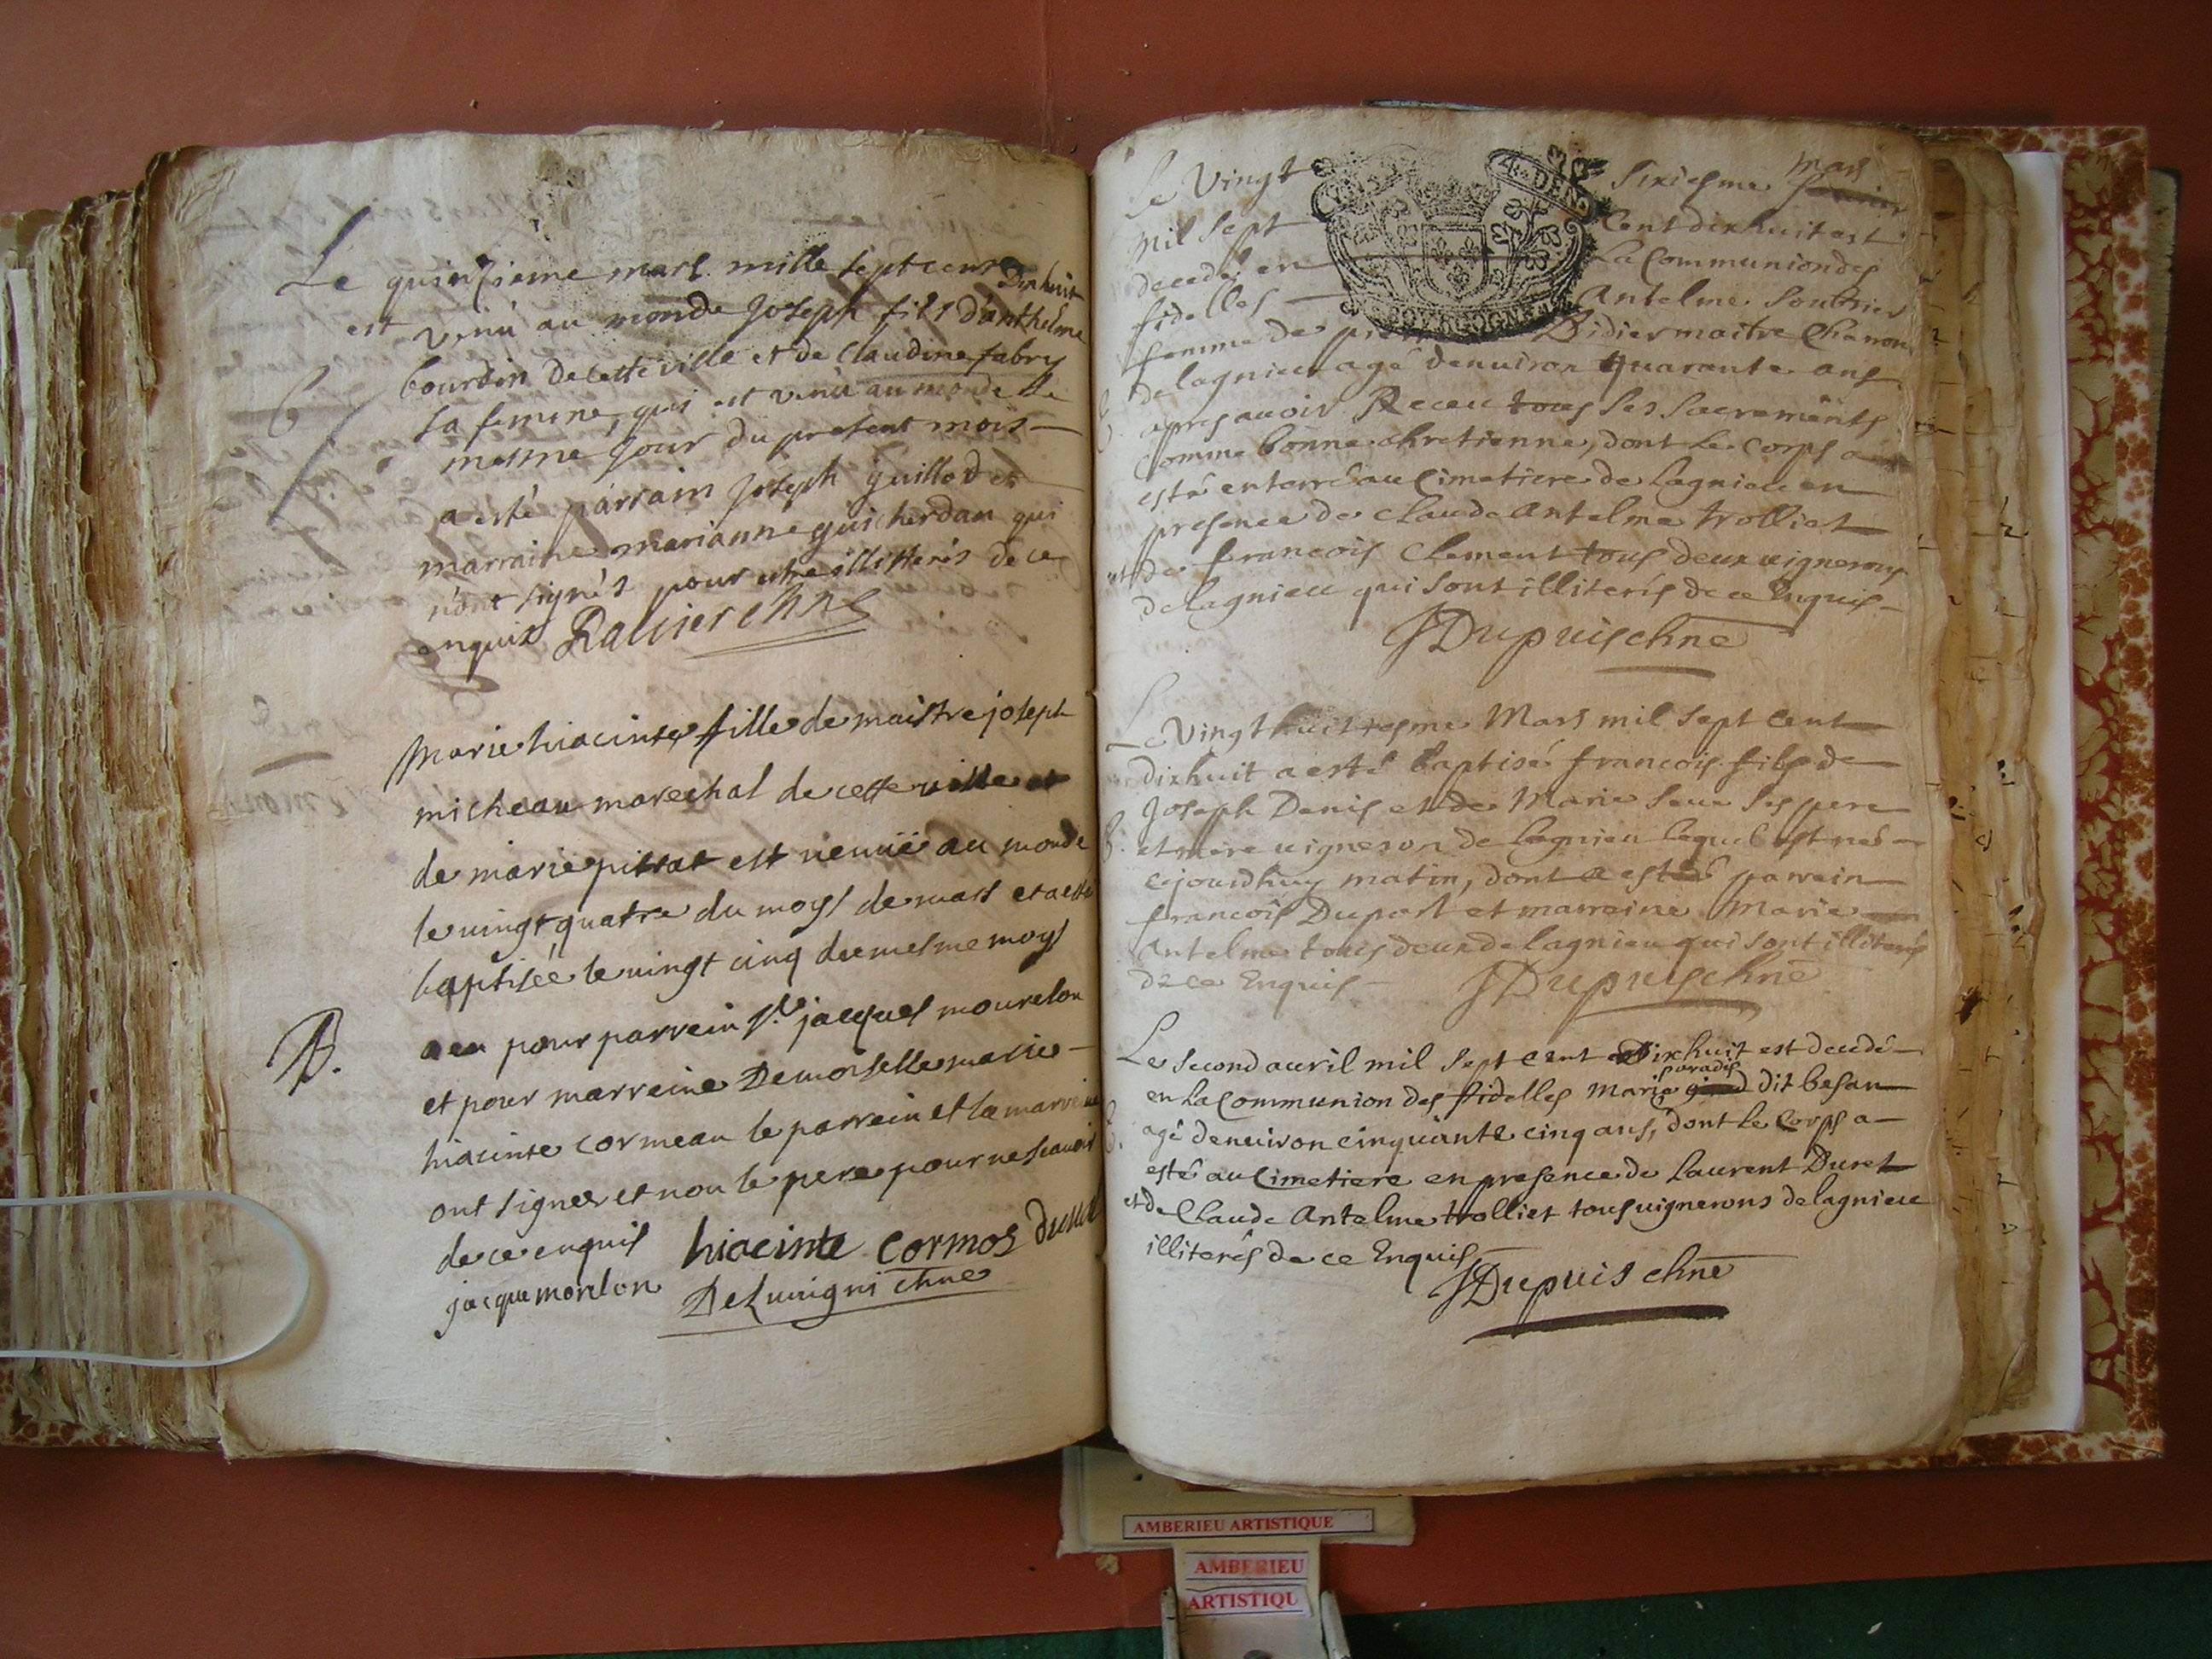 Le quinzieme mars mille sept cent Dixhuit
est venü au monde Joseph fils d'anthelme
bourdin de cette ville et de Claudine fabry
sa femme, qui est venü au monde le
mesme jour du present mois
a esté parrain Joseph guillod et
marraine marianne guicherdan qui
n'ont signés pour estre illitterés de ce
enquis Ravier chne
Marie hiacinte fille de maistre joseph
micheau marechal de cette ville et
de marie pittrat est venuë au monde
le vingt quatre du moys de mars et a esté
baptisée le vingt cinq du mesme moys
B. a eu pour parrein sr. jacques mourelon
et pour marreine Demoiselle marie
hiacinte cormeau le parrein et la marreine
ont signer et non le pere pour ne scavoir
de ce enquis hiacinte cormos
jacque morelon Deluvigni chne
Le Vingt Sixiesme mars
mil Sept Cent dixhuit est
decedé en La Communion des
fidelles Antelme
4. DEN
BOURGOGNE
femme de Didier maitre
de lagnieu agé denuiron quarante ans
apres auoir Receu tous les Sacrements
Comme bonne chretienne, dont le corps a
esté enterré au Cimetiere de Lagnieu en
presence de Claude Antelme trolliet
et de francois Clement tous deux uignerons
de lagnieu qui sont illiterés de ce Enquis
JDupuis chne
Le Vingt huictiesme Mars mil Sept Cent
dixhuit a esté baptisé francois fils de
B. Joseph Denis et de Marie Seue ses pere
et mere uigneron de lagnieu lequel est né
ejourdhuy matin, dont a esté parrein
francois Duport et marraine Marie
Antelme tous deux de lagnieu qui sont illiterés
de ce Enquis JDupuis chne
Le Second auril mil Sept Cent Dixhuit est decedé
paradis
en La Communion des fidelles Marie dit besan
agé denuiron cinquante cinq ans, dont le Corps a
esté au Cimetiere en presence de Laurent Duret
et de Claude Antelme trolliet tous uignerons de lagnieu
illiterés de ce Enquis
JDupuis chne
AMBERIEU ARTISTIQUE
AMBERIEU
ARTISTIQU